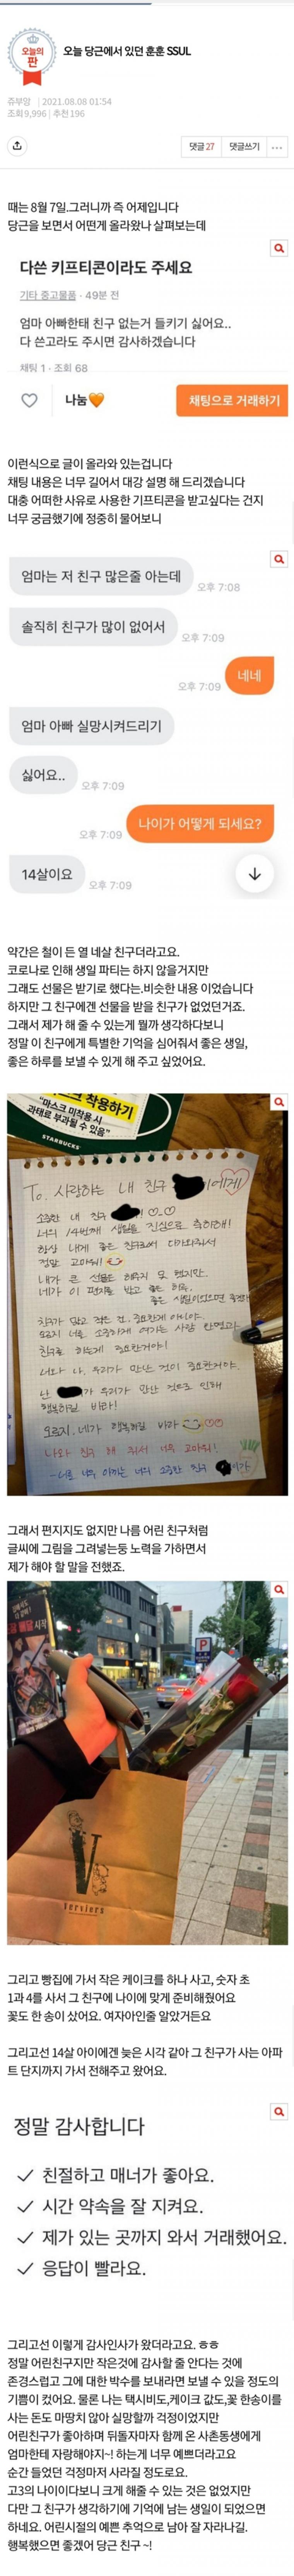 오늘의
판
오늘 당근에서 있던 훈훈 SSUL
쥬부앙 | 2021.08.08 01:54
조회 9,996 | 추천 196
댓글 27
댓글쓰기
때는 8월 7일.그러니까 즉 어제입니다
당근을 보면서 어떤게 올라왔나 살펴보는데
다쓴 키프티콘이라도 주세요
기타 중고물품 · 49분 전
엄마 아빠한태 친구 없는거 들키기 싫어요..
다 쓴고라도 주시면 감사하겠습니다
채팅 1 · 조회 68
나눔🧡
채팅으로 거래하기
이런식으로 글이 올라와 있는겁니다
채팅 내용은 너무 길어서 대강 설명 해 드리겠습니다
대충 어떠한 사유로 사용한 기프티콘을 받고싶다는 건지
너무 궁금했기에 정중히 물어보니
엄마는 저 친구 많은줄 아는데
오후 7:08
솔직히 친구가 많이 없어서
오후 7:09
네네
오후 7:09
엄마 아빠 실망시켜드리기
싫어요..
오후 7:09
나이가 어떻게 되세요?
오후 7:09
14살이요
오후 7:09
약간은 철이 든 열 네살 친구더라고요.
코로나로 인해 생일 파티는 하지 않을거지만
그래도 선물은 받기로 했다는.비슷한 내용 이었습니다
하지만 그 친구에겐 선물을 받을 친구가 없었던거죠.
그래서 제가 해 줄 수 있는게 뭘까 생각하다보니
정말 이 친구에게 특별한 기억을 심어줘서 좋은 생일,
좋은 하루를 보낼 수 있게 해 주고 싶었어요.
마스크 착용하기
"마스크 미착용 시
과태료 부과될 수 있음"
STARBUCKS
To. 사랑하는 내 친구 에게!
소중한 내 친구 !
너의 14번째 생일을 진심으로 축하해!
항상 내게 좋은 친구로써 다가와줘서
정말 고마워!
내가 큰 선물은 해주지 못 했지만.
네가 이 편지를 받고 좋은 하루,
좋은 생일이었으면 좋겠어
친구가 많고 적은 건, 중요한게 아니야.
오로지 너를 소중하게 여기는 사람 한명과
친구를 하는게 중요한거야!
너와 나, 우리가 만난 것이 중요한거야.
난 가 우리가 만난 것으로 인해
행복하길 바라!
오로지. 네가 행복하길 바라
나와 친구 해 줘서 너무 고마워!
-너를 너무 아끼는 너의 소중한 친구 가-
그래서 편지지도 없지만 나름 어린 친구처럼
글씨에 그림을 그려넣는둥 노력을 가하면서
제가 해야 할 말을 전했죠.
배달 시작
P
V
Verviers
그리고 빵집에 가서 작은 케이크를 하나 사고, 숫자 초
1과 4를 사서 그 친구에 나이에 맞게 준비해줬어요
꽃도 한 송이 샀어요. 여자아인줄 알았거든요
그리고선 14살 아이에겐 늦은 시각 같아 그 친구가 사는 아파
트 단지까지 가서 전해주고 왔어요.
정말 감사합니다
✓ 친절하고 매너가 좋아요.
✓ 시간 약속을 잘 지켜요.
✓ 제가 있는 곳까지 와서 거래했어요.
✓ 응답이 빨라요.
그리고선 이렇게 감사인사가 왔더라고요. ㅎㅎ
정말 어린친구지만 작은것에 감사할 줄 안다는 것에
존경스럽고 그에 대한 박수를 보내라면 보낼 수 있을 정도의
기쁨이 컸어요. 물론 나는 택시비도,케이크 값도,꽃 한송이를
사는 돈도 마땅치 않아 실망할까 걱정이었지만
어린친구가 좋아하며 뒤돌자마자 함께 온 사촌동생에게
엄마한테 자랑해야지~! 하는게 너무 예쁘더라고요
순간 들었던 걱정마저 사라질 정도로요.
고3의 나이이다보니 크게 해줄 수 있는 것은 없었지만
다만 그 친구가 생각하기에 기억에 남는 생일이 되었으면
하네요. 어린시절의 예쁜 추억으로 남아 잘 자라나길.
행복했으면 좋겠어 당근 친구 ~!